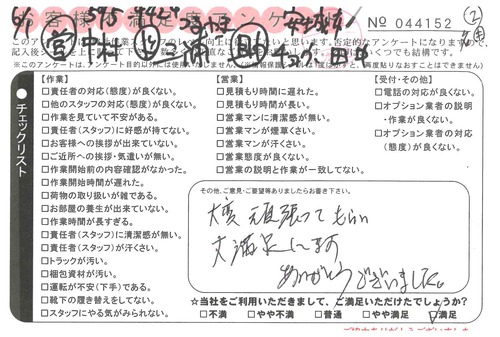 № 044152
【作業】
□責任者の対応(態度)が良くない。
□他のスタッフの対応(態度)が良くない。
□作業を見ていて不安がある。
□責任者(スタッフ)に好感が持てない。
□お客様への挨拶が出来ていない。
□ご近所への挨拶・気遣いが無い。
□作業開始前の内容確認がなかった。
□作業開始時間が遅れた。
□荷物の取り扱いが雑である。
□お部屋の養生が出来ていない。
□作業時間が長すぎる。
□責任者(スタッフ)に清潔感が無い。
□責任者(スタッフ)が汗くさい。
□トラックが汚い。
□梱包資材が汚い。
□運転が不安(下手)である。
□靴下の履き替えをしてない。
□スタッフにやる気がみられない。
チェックリスト
【営業】
□見積もり時間に遅れた。
□見積もり時間が長い。
□営業マンに清潔感が無い。
□営業マンが煙草くさい。
□営業マンが汗くさい。
□営業態度が良くない。
□営業の説明と作業が一致してない。
【受付・その他】
□電話の対応が良くない。
□オプション業者の説明
・作業が良くない。
□オプション業者の対応
(態度)が良くない。
その他、ご意見・ご要望等ありましたらお書き下さい。
大変頑張ってもらい
大満足してます
ありがとうございました。
☆当社をご利用いただきまして、ご満足いただけたでしょうか?
□不満 □やや不満 □普通 □やや満足 □満足